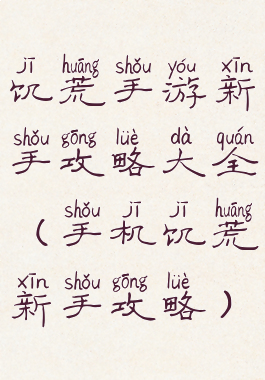 jī huāng shǒu yóu xīn
饥荒手游新
shǒu gōng lüè dà quán
手攻略大全
shǒu jī jī huāng
（手机饥荒
xīn shǒu gōng lüè
新手攻略）